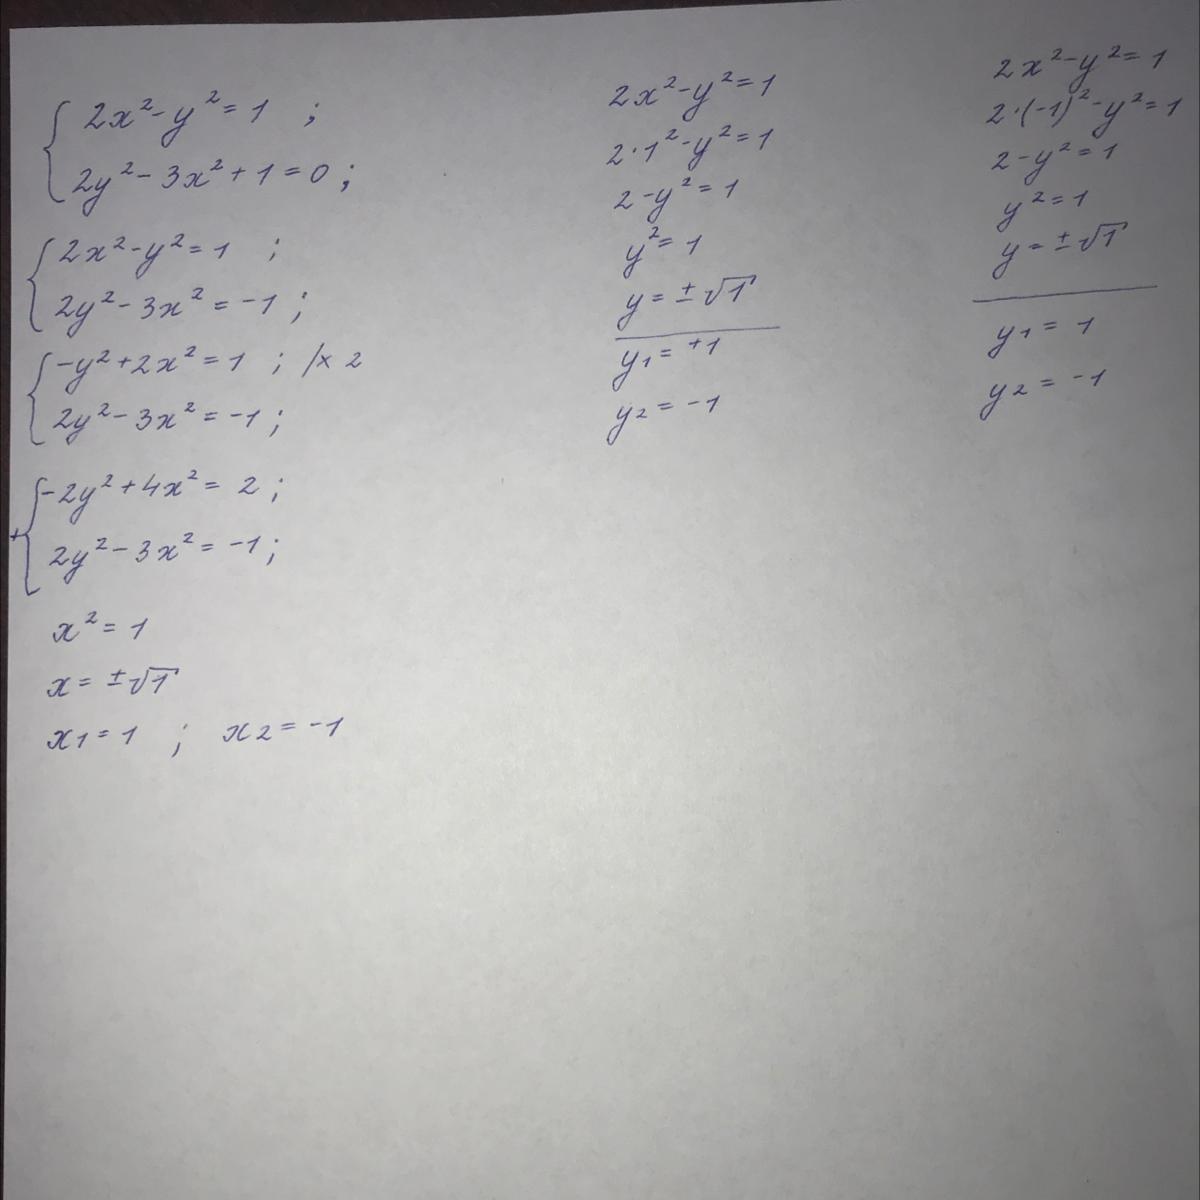 2x² - y² = 1 ;
2y² - 3x² + 1 = 0 ;
2x² - y² = 1 ;
2y² - 3x² = -1 ;
-y² + 2x² = 1 ; /× 2
2y² - 3x² = -1 ;
-2y² + 4x² = 2 ;
+
2y² - 3x² = -1 ;
x² = 1
x = ±√1
x1 = 1 ; x2 = -1
2x² - y² = 1
2·1² - y² = 1
2 - y² = 1
y² = 1
y = ±√1
y1 = +1
y2 = -1
2x² - y² = 1
2·(-1)² - y² = 1
2 - y² = 1
y² = 1
y = ±√1
y1 = 1
y2 = -1